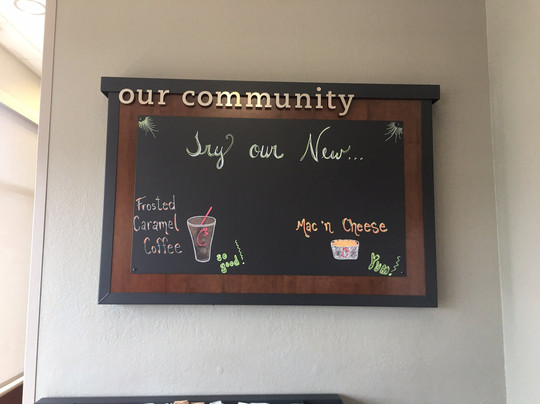 our community
Try our New...
Frosted
Caramel
Coffee
so
good!
Mac 'n Cheese
Yum!